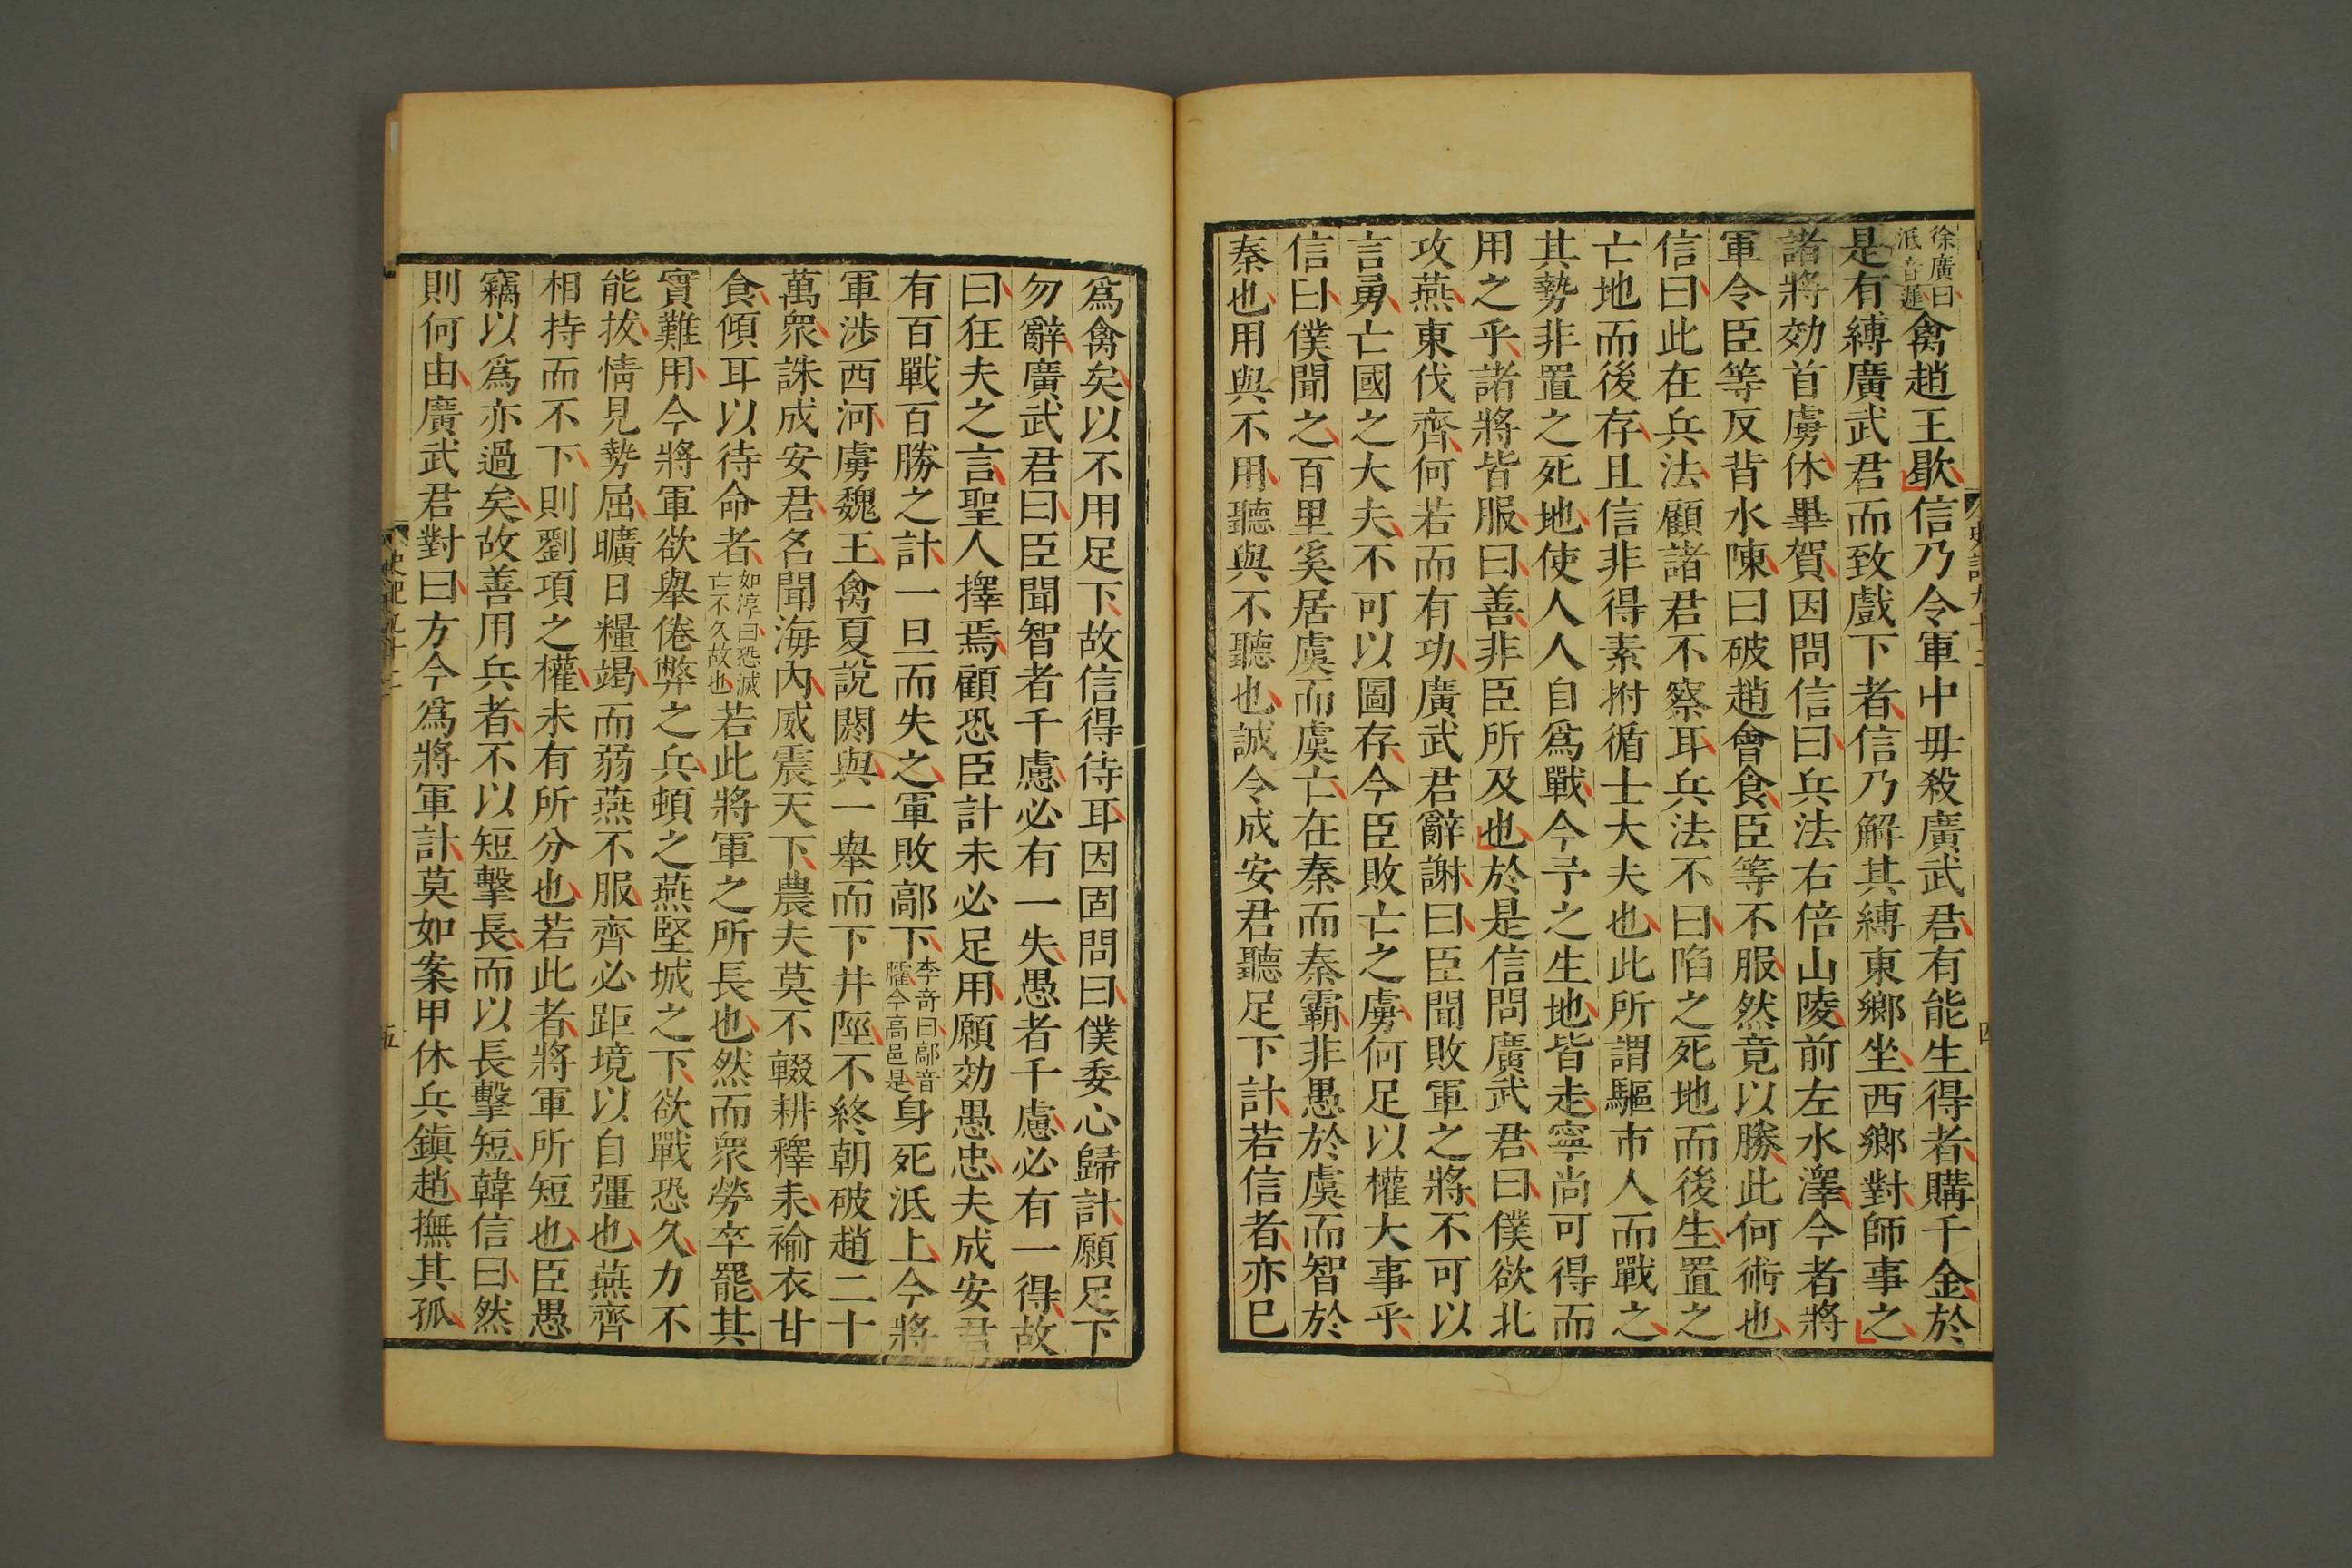 徐廣曰泜音遲禽趙王歇信乃令軍中毋殺廣武君有能生得者購千金於
是有縛廣武君而致戲下者信乃解其縛東鄉坐西鄉對師事之
諸將効首虜休畢賀因問信曰兵法右倍山陵前左水澤今者將
軍令臣等反背水陳曰破趙會食臣等不服然竟以勝此何術也
信曰此在兵法顧諸君不察耳兵法不曰陷之死地而後生置之
亡地而後存且信非得素拊循士大夫也此所謂驅市人而戰之
其勢非置之死地使人人自爲戰今予之生地皆走寧尚可得而
用之乎諸將皆服曰善非臣所及也於是信問廣武君曰僕欲北
攻燕東伐齊何若而有功廣武君辭謝曰臣聞敗軍之將不可以
言勇亡國之大夫不可以圖存今臣敗亡之虜何足以權大事乎
信曰僕聞之百里奚居虞而虞亡在秦而秦霸非愚於虞而智於
秦也用與不用聽與不聽也誠令成安君聽足下計若信者亦已
四
爲禽矣以不用足下故信得待耳因固問曰僕委心歸計願足下
勿辭廣武君曰臣聞智者千慮必有一失愚者千慮必有一得故
曰狂夫之言聖人擇焉顧恐臣計未必足用願効愚忠夫成安君
有百戰百勝之計一旦而失之軍敗鄗下李奇曰鄗音臛今高邑是身死泜上今將
軍涉西河虜魏王禽夏說閼與一舉而下井陘不終朝破趙二十
萬衆誅成安君名聞海內威震天下農夫莫不輟耕釋耒褕衣甘
食傾耳以待命者如淳曰恐滅亡不久故也若此將軍之所長也然而衆勞卒罷其
實難用今將軍欲舉倦弊之兵頓之燕堅城之下欲戰恐久力不
能拔情見勢屈曠日糧竭而弱燕不服齊必距境以自彊也燕齊
相持而不下則劉項之權未有所分也若此者將軍所短也臣愚
竊以爲亦過矣故善用兵者不以短擊長而以長擊短韓信曰然
則何由廣武君對曰方今爲將軍計莫如案甲休兵鎮趙撫其孤
五